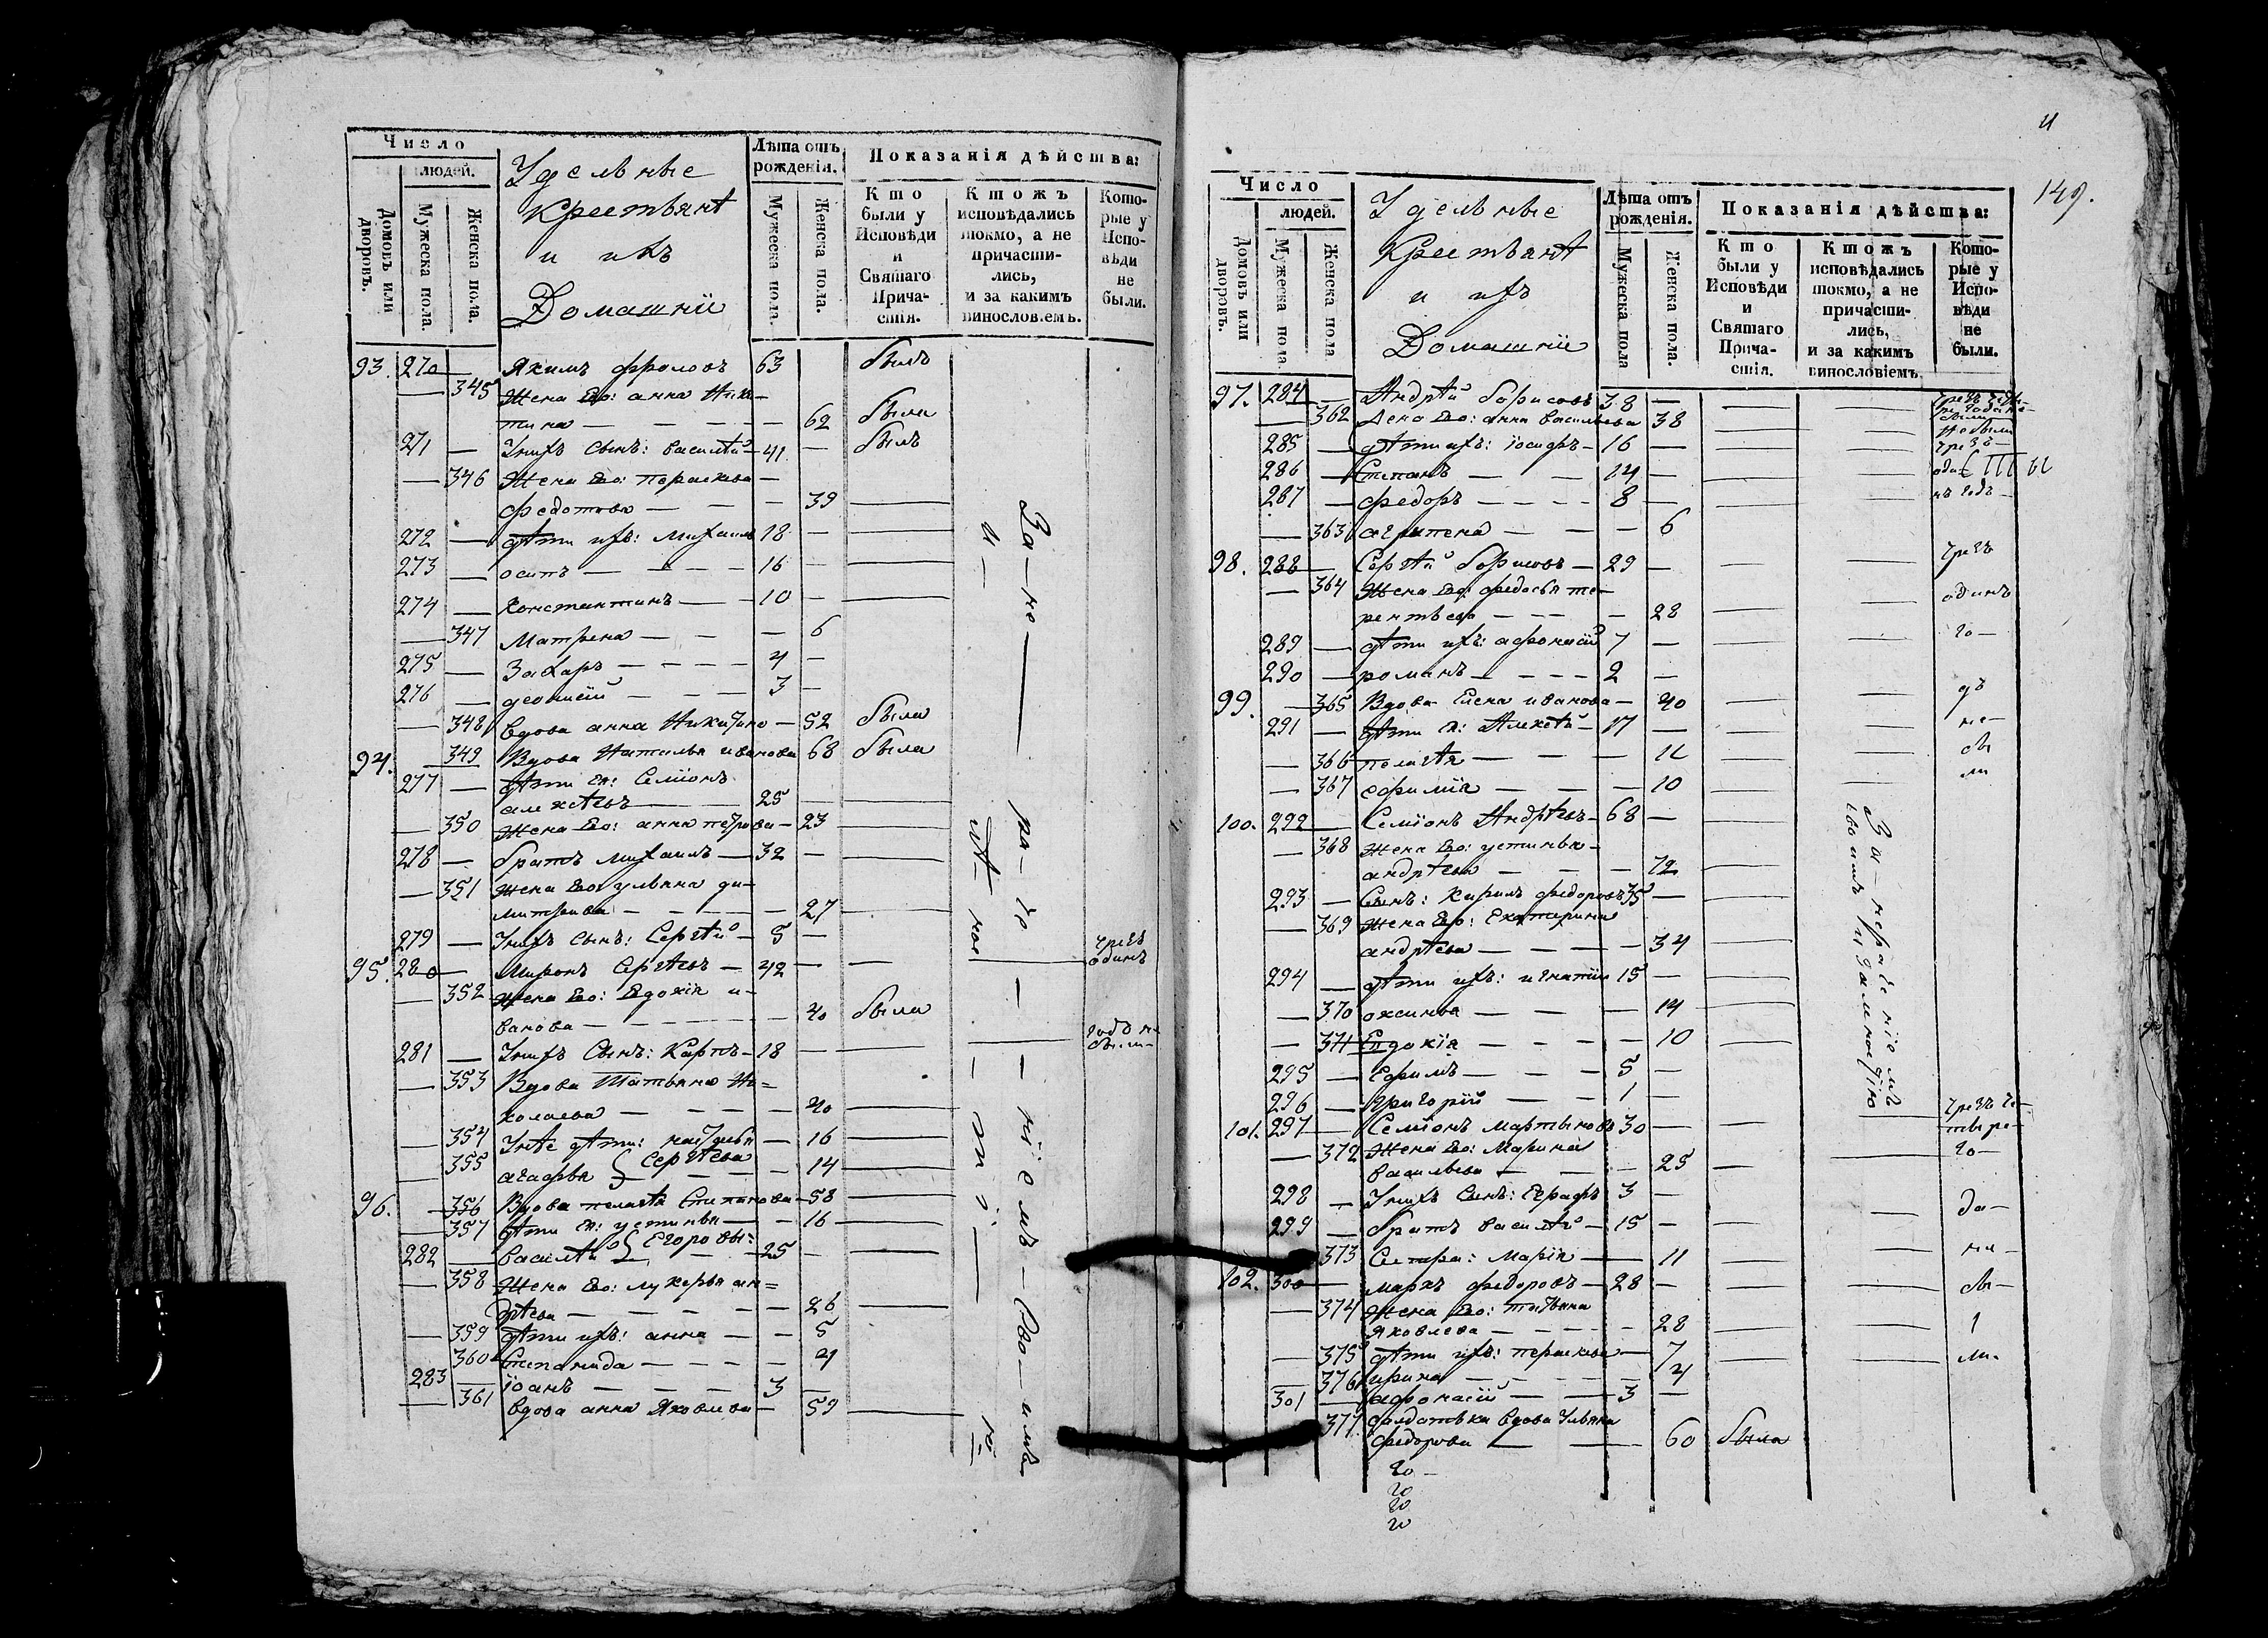 Число
людей.
Домовъ или дворовъ.
Мужеска пола.
Женска пола.
Удельные
Крестьянѣ
и ихъ
Домашніи
Лѣта отъ рожденія.
Мужеска пола.
Женска пола.
Показанія дѣйства:
Кто были у Исповѣди и Святаго Причастія.
Ктожъ исповѣдались токмо, а не причастились, и за какимъ винословіемъ.
Которые у Исповѣди не были.
93. 270 — Якимъ Фроловъ 63 былъ
— 345 Жена Его: анна Ники-
тина — — — — 62 была
271 — У нихъ сынъ: василѣй — 41 — былъ
— 346 Жена Его: пораскева —
федотова — — — 39 —
272 — дѣти ихъ: михаилъ 18 — —
273 — осипъ — — — 16 — —
274 — Константинъ — 10 — —
— 347 Матрена — — — 6
275 — Захаръ — — — 4 —
276 — — — — 3 —
— 348 вдова анна Никитина — 52 была
94. 349 Вдова Наталья иванова 68 была
277 — дѣти Ея: Семіонъ
алексѣевъ — — 25 — —
— 350 Жена Его: анна петрова — 23 —
278 — братъ михаилъ — 32 — —
— 351 жена Его ульяна ди-
митриева — — — — 27 —
279 — У нихъ сынъ: Сергѣй — 5 —
95. 280 — Миронъ Сергѣевъ — 42 — — чрезъ одинъ
— 352 жена Его: Евдокія и-
ванова — — — — 40 была
281 — У нихъ Сынъ: Карпъ — 18 — — годъ не были
— 353 Вдова Татьяна Ни=
колаева — — — — 40 —
— 354 У неѣ дѣти: — 16 —
— 355 агафья } Сергѣева — — 14 —
96. — 356 Вдова пелагѣя Степанова — 58 —
— 357 дѣти Ея: устинья — — 16 —
282 — василѣй } Егоровы: — 25 — —
— 358 Жена Его: лукерья ан=
дрѣева — — — — 26 —
— 359 дѣти ихъ: анна — — 5
360 Степанида — — — — 4
283 — іоанъ — — — 3 —
— 361 вдова анна Яковлева — 59 —
За — не — ра — че — ніемъ — Сво — имъ
149.
Число
людей.
Домовъ или дворовъ.
Мужеска пола
Женска пола
Удельные
Крестьянѣ
и ихъ
Домашніи
Лѣта отъ рожденія.
Мужеска пола
Женска пола.
Показанія дѣйства:
Кто были у Исповѣди и Святаго Причастія.
Ктожъ исповѣдались токмо, а не причастились, и за какимъ винословіемъ
Которые у Исповѣди не были.
97. 284 — Андрѣй борисовъ 38 — — —
— 362 Жена Его: анна васильева 38 — —
285 — дѣти ихъ: іосифъ — 16 — — —
286 — Степанъ — — 14 — — —
287 — федоръ — — — 8 — — —
— 363 агрипена — — — 6
98. 288 — Сергѣй борисовъ — 29 — — — чрезъ
— 364 Жена Его: федосья те-
рентьева — — — 28 — — одинъ
289 — дѣти ихъ: афонасій 7 — — го-
290 — романъ — — — 2 —
99. — 365 Вдова Елена иванова — 40 — — дъ
291 — дѣти Ея: Алексѣй — 17 — — — не-
— 366 пелагѣя — — — 12 — — бы
— 367 ефимія — — — 10 — — ли
100. 292 — Семіонъ Андрѣевъ — 68 — —
— 368 Жена Его: устинья
андрѣева — — — 72 —
293 — Сынъ: Кирилъ федоровъ 35 — —
— 369 Жена Его: Екатерина
андрѣева — — — — 34 —
294 — дѣти ихъ: игнатій 15 — —
— 370 оксинья — — — 14 —
— 371 Евдокія — — — — 10 —
295 — Ефимъ — — — 5 —
296 — Григорій — — — 1 —
101. 297 — Семіонъ Мартыновъ 30 — — — чрезъ че-
тыре-
— 372 Жена Его: Марина
васильева — — — 25 — — го-
298 — У нихъ Сынъ: 3 —
299 — братъ василѣй — 15 — — — да-
373 Сестра: Марія — — 11 — — не-
102. 300 — маркъ федоровъ — 28 — — — бы-
— 374 Жена Его: татьяна
яковлева — — — — 28 — —
— 375 дѣти ихъ: пераскева — 7 — — ли.
— 376 ирина — — — — 4
301 — афонасій — — 3 —
377. Салдатьска вдова Ульяна
федорова — — 60 была
За нераченіемъ
своимъ